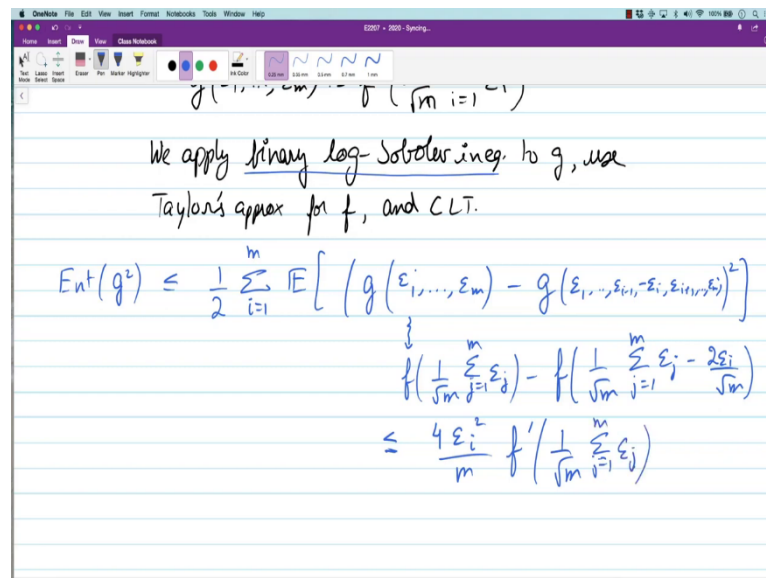 OneNote File Edit View Insert Format Notebooks Tools Window Help 100%
E2207 - 2020 - Syncing...
Home Insert Draw View Class Notebook
Text Mode Lasso Select Insert Space Eraser Pen Marker Highlighter Ink Color 0.25 mm 0.35 mm 0.5 mm 0.7 mm 1 mm
We apply binary log-Sobolev ineq. to g, use
Taylor's approx for f, and CLT.
Ent(g²) ≤ 1/2 Σ_{i=1}^{m} E[ ( g(ε_i, ..., ε_m) - g(ε_1, ..., ε_{i-1}, -ε_i, ε_{i+1}, ..., ε_m) )² ]
f( 1/√m Σ_{j=1}^{m} ε_j ) - f( 1/√m Σ_{j=1}^{m} ε_j - 2ε_i/√m )
≤ 4ε_i²/m f'( 1/√m Σ_{j=1}^{m} ε_j )